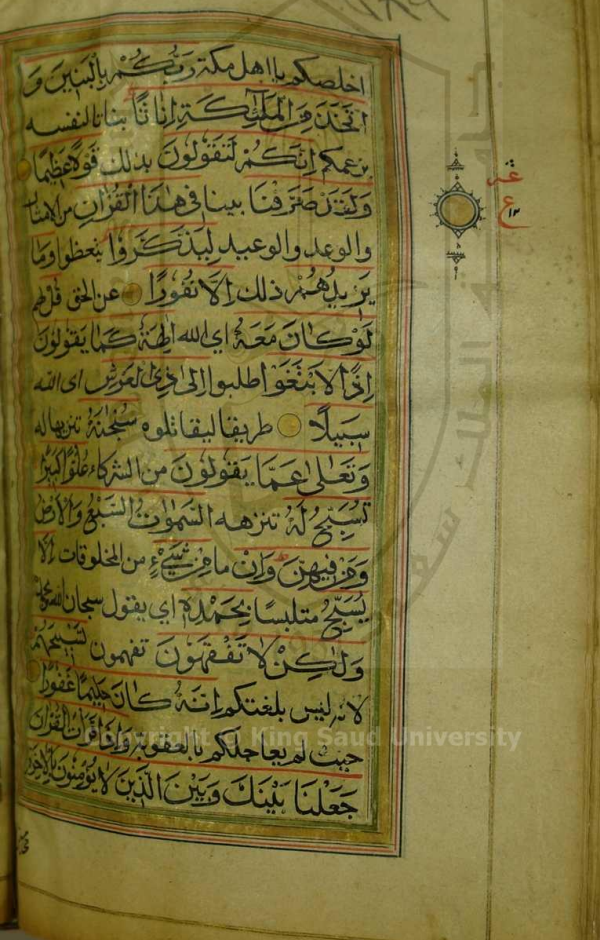 اخلصكم يا اهل مكة رَبُّكُمْ بِالْبَنِينَ وَ
اتَّخَذَ مِنَ الْمَلٰٓئِكَةِ اِنَاثًا بناتا لنفسه
بزعمكم اِنَّكُمْ لَتَقُولُونَ بذلك قَوْلًا عَظِيمًا
وَلَقَدْ صَرَّفْنَا بينا فِي هٰذَا الْقُرْاٰنِ من الامثال
والوعد والوعيد لِيَذَّكَّرُوا يتعظوا وَمَا
يَزِيدُهُمْ ذلك اِلَّا نُفُورًا عن الحق قُلْ لهم
لَوْ كَانَ مَعَهُ اي الله اٰلِهَةٌ كَمَا يَقُولُونَ
اِذًا لَّابْتَغَوْا طلبوا اِلٰى ذِي الْعَرْشِ اي الله
سَبِيلًا طريقا ليقاتلوه سُبْحٰنَهُ تنزيها له
وَتَعَالٰى عَمَّا يَقُولُونَ من الشركاء عُلُوًّا كَبِيرًا
تُسَبِّحُ لَهُ تنزهه السَّمٰوَاتُ السَّبْعُ وَالْاَرْضُ
وَمَنْ فِيهِنَّ وَاِنْ ما مِنْ شَيْءٍ من المخلوقات اِلَّا
يُسَبِّحُ متلبسا بِحَمْدِهِ اي يقول سبحان الله وبحمده
وَلٰكِنْ لَا تَفْقَهُونَ تفهمون تَسْبِيحَهُمْ
لانه ليس بلغتكم اِنَّهُ كَانَ حَلِيمًا غَفُورًا
حيث لم يعاجلكم بالعقوبة وَاِذَا قَرَأْتَ الْقُرْاٰنَ
جَعَلْنَا بَيْنَكَ وَبَيْنَ الَّذِينَ لَا يُؤْمِنُونَ بِالْاٰخِرَةِ
Copyright © King Saud University